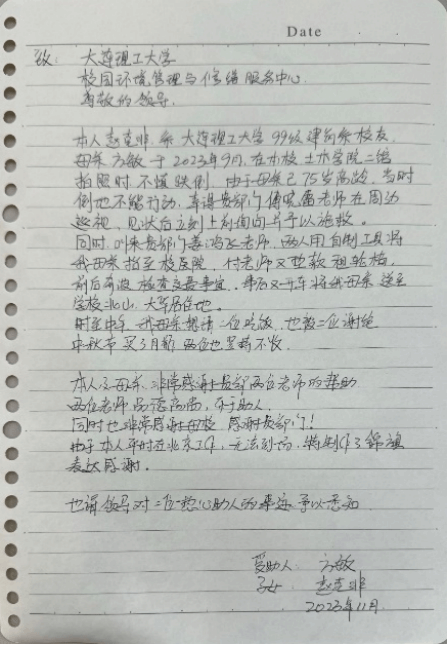 Date
致: 大连理工大学
校园环境管理与修缮服务中心
尊敬的领导.
本人赵克非 系大连理工大学99级建筑系校友
母亲 方敏 于2023年9月, 在本校土木学院二馆
拍照时 不慎跌倒, 由于母亲已75岁高龄, 当时
倒地不能行动, 幸得贵部门傅 老师在周边
巡视, 见状后立刻上前询问并予以施救.
同时 叫来贵部门姜鸿飞老师, 两人用自制工具将
我母亲抬至校医院, 付老师又垫款租轮椅,
前后奔波 检查及善事宜, 事后又开车将我母亲送至
学校北山, 大车居住地.
时至中午 我母亲想请二位吃饭, 也被二位谢绝
中秋节 买了月饼 两位也坚持不收.
本人及母亲 非常感谢贵部两位老师的帮助
两位老师品德高尚, 乐于助人.
同时也非常感谢母校 感谢贵部门!
由于本人平时在北京工作, 无法到场, 特制作了锦旗
表达感谢.
也请领导对二位热心助人的事迹予以悉知
受助人: 方敏
子: 赵克非
2023年11月.